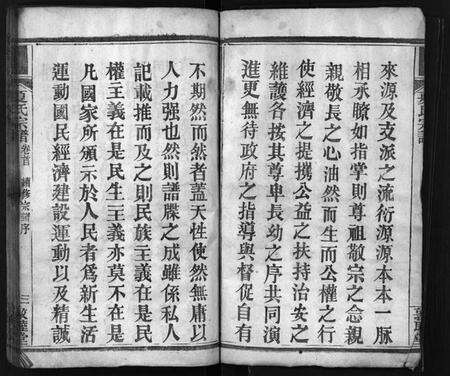 來源及支派之流衍源源本本一脈
相承瞭如指掌則尊祖敬宗之念親
親敬長之心油然而生而公權之行
使經濟之提攜公益之扶持治安之
維護各按其尊卑長幼之序共同演
進更無待政府之指導與督促自有
不期然而然者蓋天性使然無庸以
人力強也然則譜牒之成雖係私人
記載推而及之則民族主義在是民
權主義在是民生主義亦莫不在是
凡國家所頒示於人民者為新生活
運動國民經濟建設運動以及精誠
氏宗譜 卷首 續修宗譜序 三